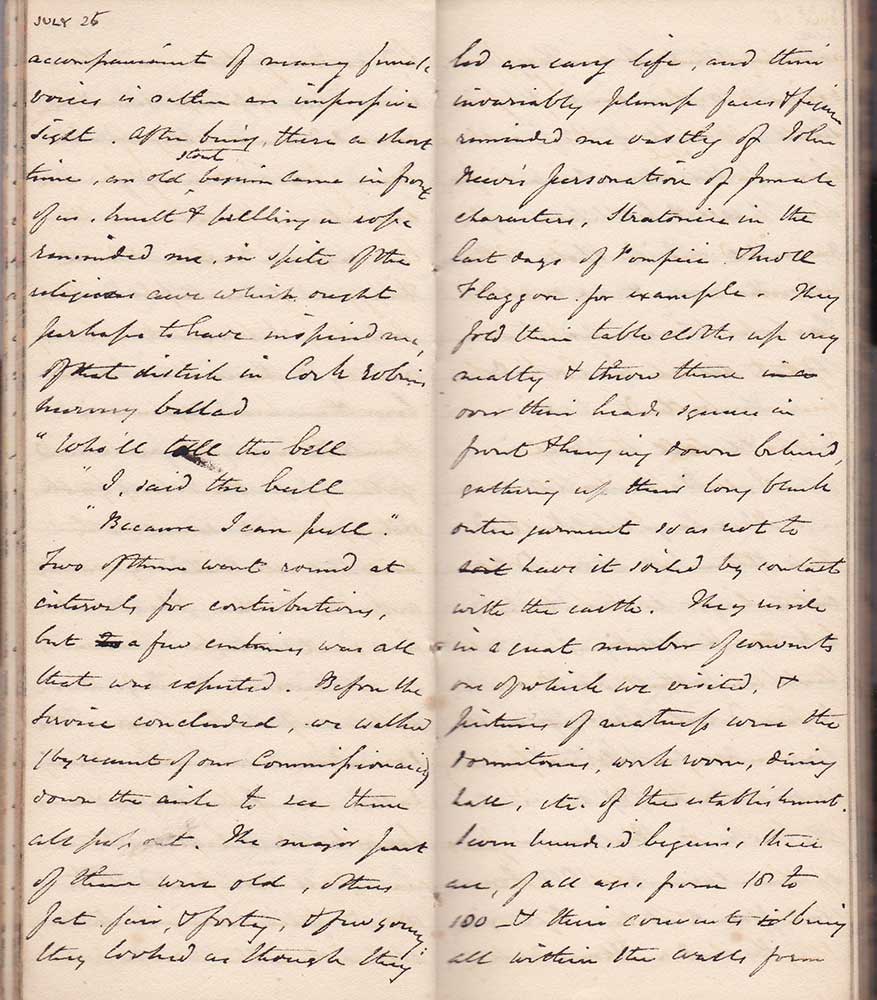 JULY 26
accompaniment of many female
voices is rather an impressive
sight. After being there a short
stout
time, an old beguin came in front
of us, knelt & pulling a rope
reminded me, in spite of the
religious awe which ought
perhaps to have inspired me,
of that distich in Cock robin's
nursery ballad
"Who'll toll the bell
"I, said the bull
"Because I can pull".
Two of them went round at
intervals for contributions,
but a few centimes was all
that was expected. Before the
Service concluded, we walked
(by request of our Commissionaire)
down the aisle to see them
all pass out. The major part
of them were old, others
fat, fair, & forty, & few young;
they looked as though they
led an easy life, and their
invariably plump faces & figures
reminded me vastly of John
Reeve's personation of female
characters, Stratonice in the
last days of Pompeii & Moll
Flaggon for example. They
fold their table cloths up very
neatly & throw them
over their heads square in
front & hanging down behind,
gathering up their long black
outer garment so as not to
soil have it soiled by contact
with the earth. They reside
in a great number of convents
one of which we visited, &
pictures of neatness were the
dormitories, work room, dining
hall, etc. of the establishment.
Seven hundred beguins there
are, of all ages from 18 to
100 - & their convents being
all within the walls form